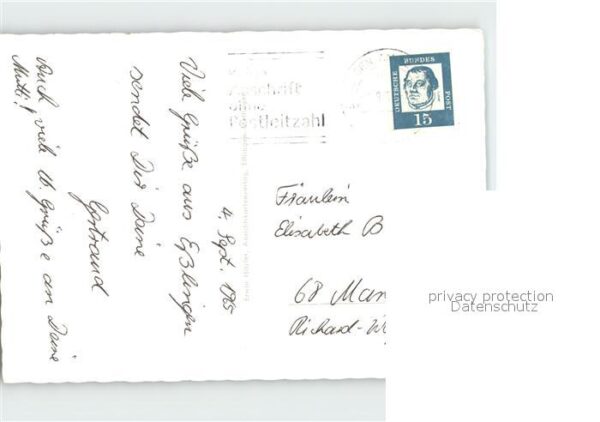 4. Sept. 1965
Viele Grüße aus Eßlingen
sendet Dir Deine
Gertraud
Auch viele lb. Grüße an Deine
Mutti!
Anschrift
ohne
Postleitzahl
DEUTSCHE BUNDES POST
15
Fräulein
Elisabeth B
68 Man
Richard-W
privacy protection
Datenschutz